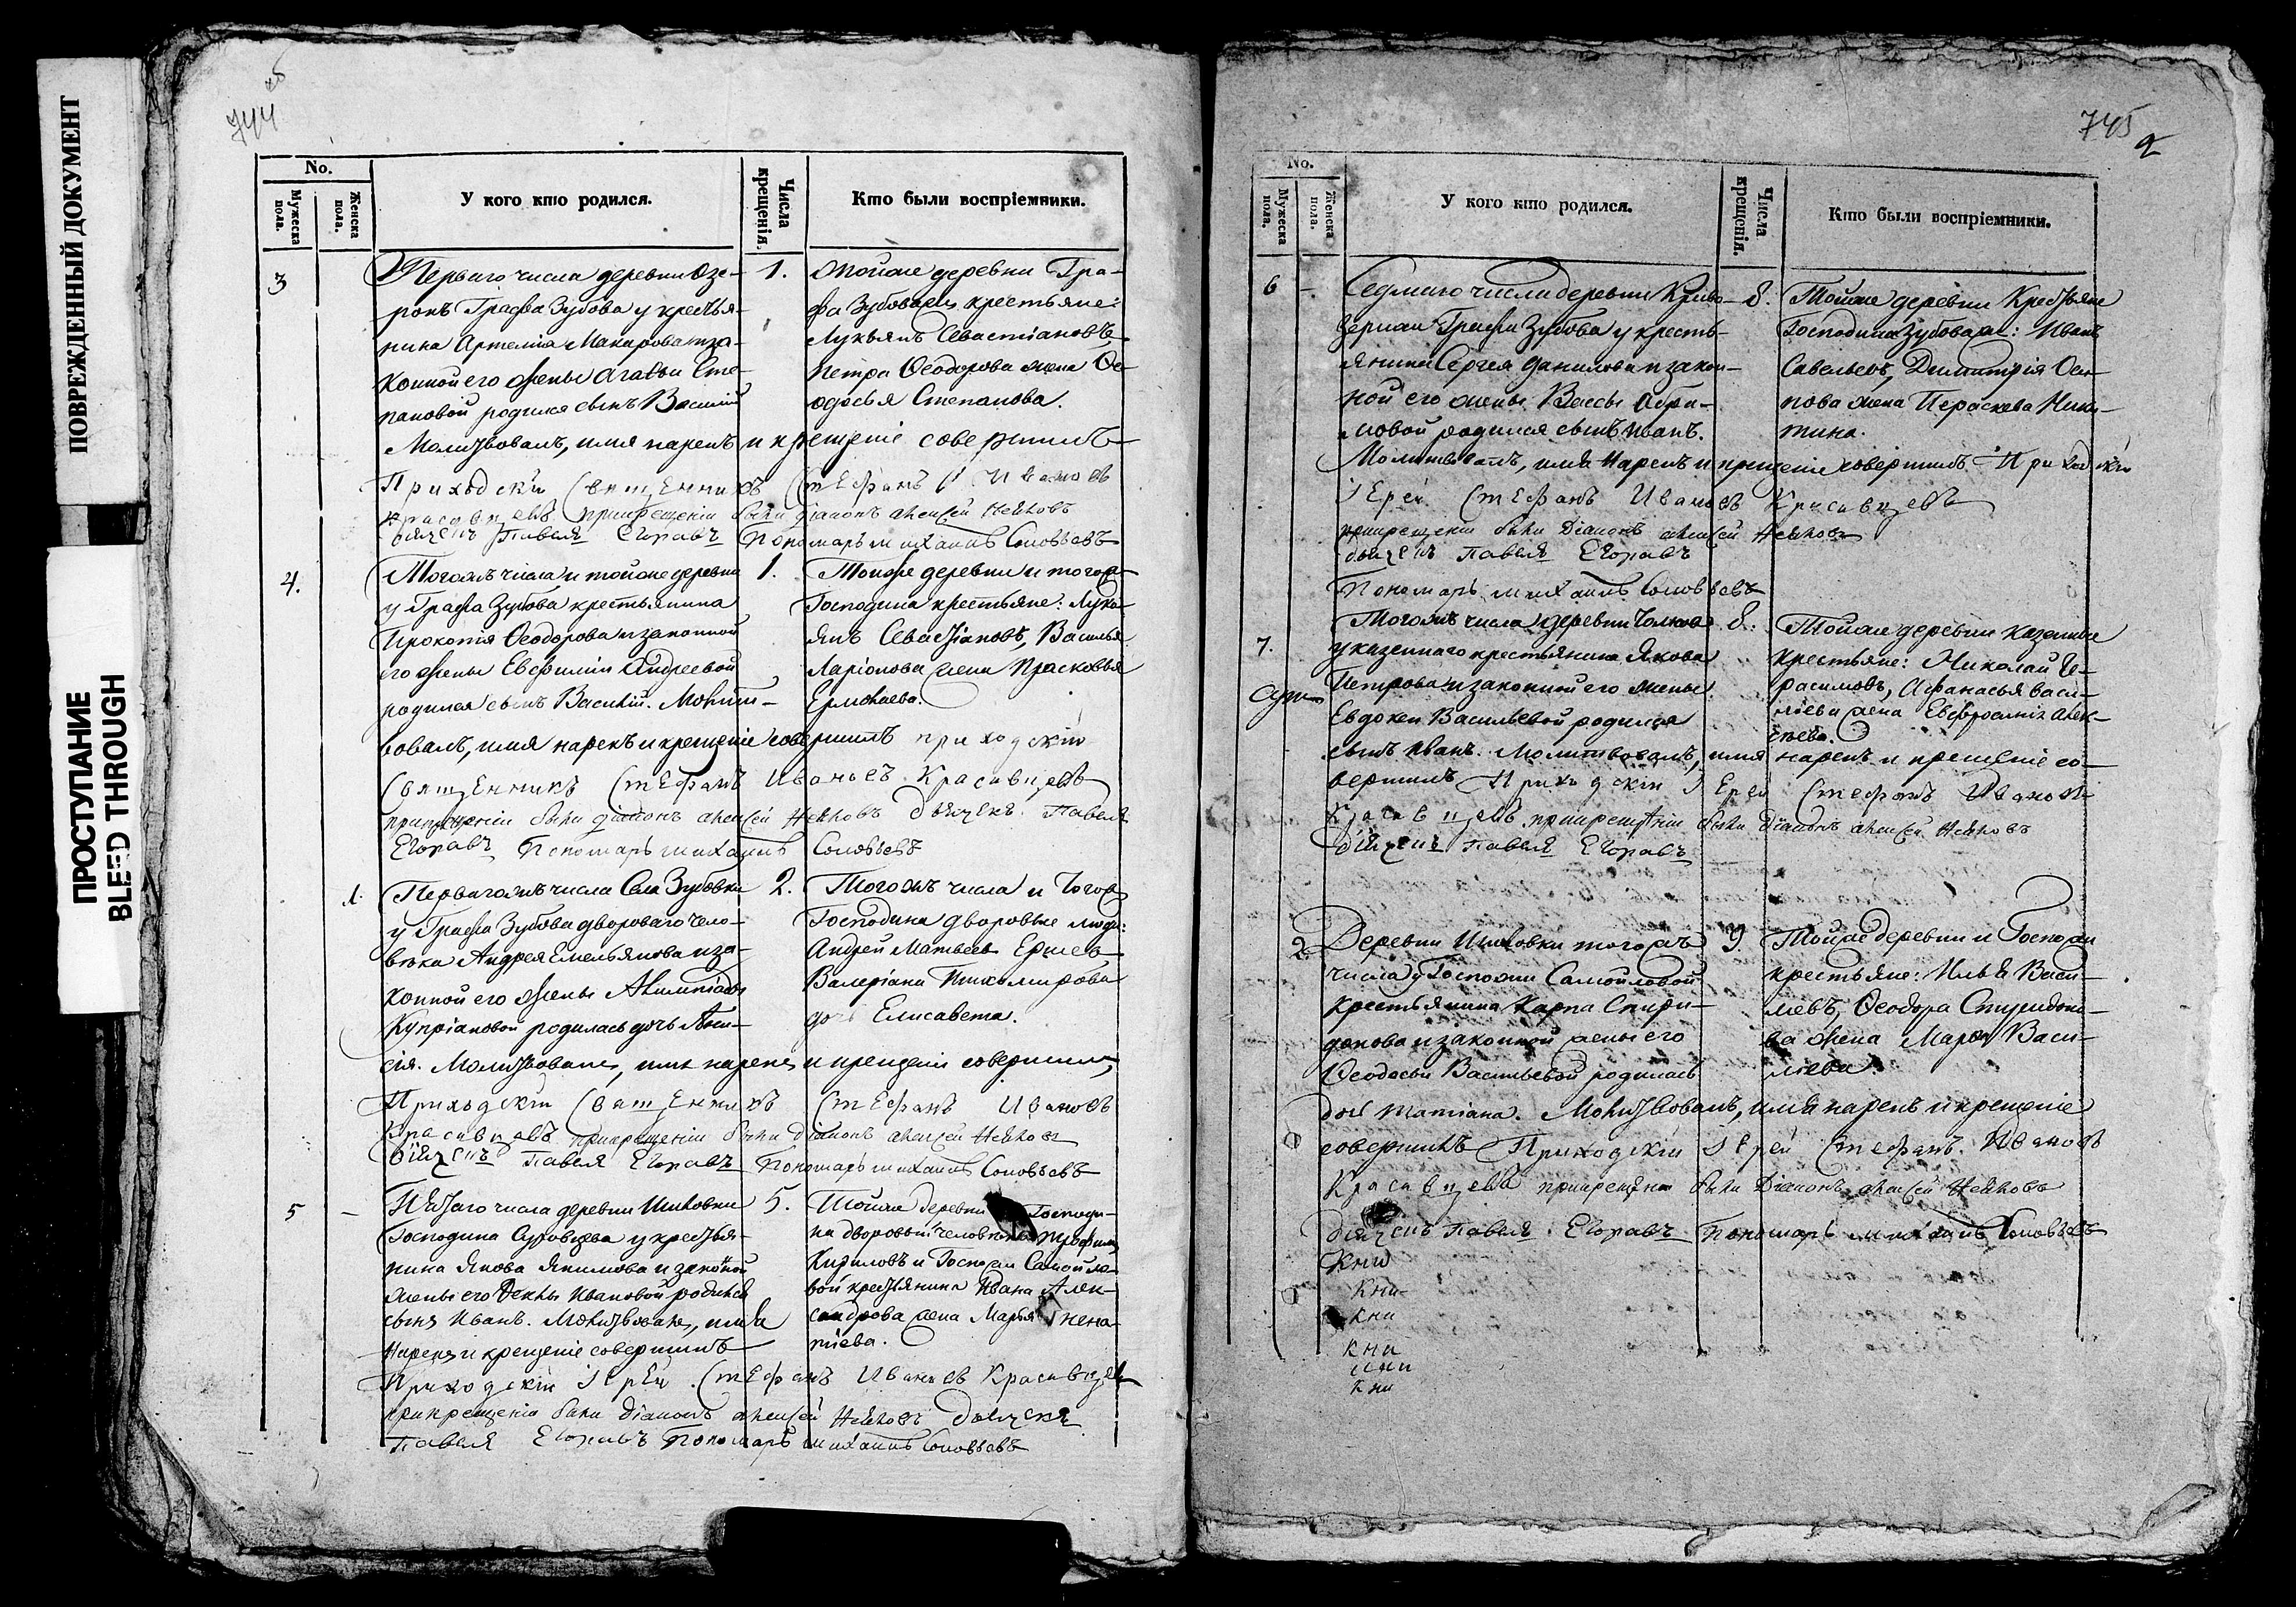 ПОВРЕЖДЕННЫЙ ДОКУМЕНТ
ПРОСТУПАНИЕ
BLEED THROUGH
744
No.
Мужеска пола.
Женска пола.
У кого кто родился.
Числа крещенія.
Кто были воспріемники.
3
Перваго числа деревни Озе-
рокъ Графа Зубова у крестья-
нина Артемія Макарова и за-
конной его жены Агаѳьи Сте-
пановой родился сынъ Василій
Молитвовалъ, имя нарекъ и крещеніе совершилъ
Приходскій Священникъ Стефанъ Ивановъ
Красавцевъ при крещеніи были діаконъ Алексей
дьячекъ Павелъ Егоравъ Пономарь михаилъ Соловьевъ
1.
Тойже деревни Гра-
фа Зубова крестьяне:
Лукьянъ Севастіановъ,
Петра Ѳеодорова жена Ѳе-
одосья Степанова.
4.
Тогожъ числа и тойже деревни
у Графа Зубова крестьянина
Прокопія Ѳеодорова и законной
его жены Евфиміи Андреевой
родился сынъ Василій. Молит-
вовалъ, имя нарекъ и крещеніе совершилъ приходскій
Священникъ Стефанъ Ивановъ Красавцевъ
при крещеніи были діаконъ Алексей дьячекъ Павелъ
Егоравъ Пономарь михаилъ Соловьевъ
1.
Тойже деревни и тогоже
Господина крестьяне: Лукь-
янъ Севастіановъ, Василья
Ларіонова жена Прасковья
Ермолаева.
1.
Перваго жъ числа Села Зубовки
у Графа Зубова двороваго чело-
века Андрея Емельянова и за-
конной его жены Акилины
Купріановой родилась дочь
сія. Молитвовалъ, имя нарекъ и крещеніе совершилъ
Приходскій Священникъ Стефанъ Ивановъ
Красавцевъ при крещеніи были діаконъ Алексей
дьячекъ Павелъ Егоравъ Пономарь михаилъ Соловьевъ
2.
Тогожъ числа и тогоже
Господина дворовые люди:
Андрей Матвеевъ
Валеріана Тихомирова
дочь Елисавета.
5
Пятаго числа деревни Шиловки
Господина Суровцева у крестья-
нина Якова Якимова и законной
жены его Ѳеклы Ивановой родился
сынъ Иванъ. Молитвовалъ, имя
нарекъ и крещеніе совершилъ
Приходскій Іерей Стефанъ Ивановъ Красавцевъ
при крещеніи были діаконъ Алексей дьячекъ
Павелъ Егоравъ Пономарь михаилъ Соловьевъ
5.
Тойже деревни Господи-
на дворовый человекъ
Кириловъ и Госпожи Самойло-
вой крестьянина Ивана Алек-
сандрова жена Марья Игна-
тіева.
745
2
No.
Мужеска пола.
Женска пола.
У кого кто родился.
Числа крещенія.
Кто были воспріемники.
6
Седмаго числа деревни Криво-
зерки Графа Зубова у кресть-
янина Сергея Данилова и закон-
ной его жены Вассы Абра-
мовой родился сынъ Иванъ.
Молитвовалъ, имя нарекъ и крещеніе совершилъ Приходскій
Іерей Стефанъ Ивановъ Красавцевъ
при крещеніи были Діаконъ Алексей
дьячекъ Павелъ Егоравъ
Пономарь михаилъ Соловьевъ
8.
Тойже деревни Крестьяне
Господина Зубова: Иванъ
Савельевъ, Димитрія Оси-
пова жена Параскева Ники-
тина.
7.
Тогожъ числа деревни
у казеннаго крестьянина Якова
Петрова и законной его жены
Евдокеи Васильевой родился
сынъ Иванъ. Молитвовалъ, имя нарекъ и крещеніе со-
вершилъ Приходскій Іерей Стефанъ Ивановъ
Красавцевъ при крещеніи были Діаконъ Алексей
дьячекъ Павелъ Егоравъ
8.
Тойже деревни казенные
крестьяне: Николай Ге-
расимовъ, Афанасья Васи-
льева жена Евфросинія Алек-
сеева.
2
Деревни Шиловки тогожъ
числа у Госпожи Самойловой
крестьянина Карпа Спири-
донова и законной жены его
Ѳеодосьи Васильевой родилась
дочь татіана. Молитвовалъ, имя нарекъ и крещеніе
совершилъ Приходскій Іерей Стефанъ Ивановъ
Красавцевъ при крещеніи были Діаконъ Алексей
дьячекъ Павелъ Егоравъ Пономарь михаилъ Соловьевъ
9.
Тойже деревни и Госпожи
крестьяне: Илья Васи-
льевъ, Ѳеодора Спиридоно-
ва жена Марья Васи-
льева.
Кни
Кни
Кни
Кни
Кни
Кни